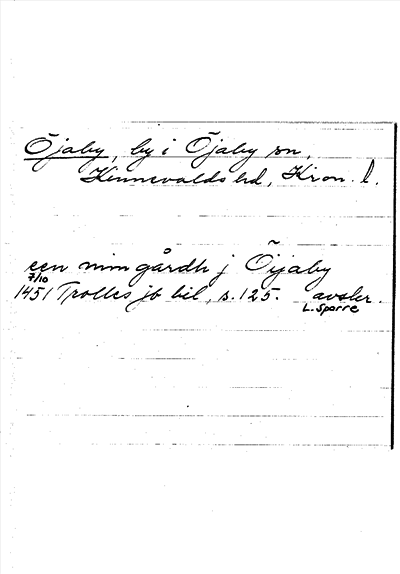 Öjaby, by i Öjaby sn,
Kinnevalds hd, Kron. l.
een min gårdh j Öÿaby
7/10
1451 Trolles jb bil, s. 125. avskr.
L. Sparre